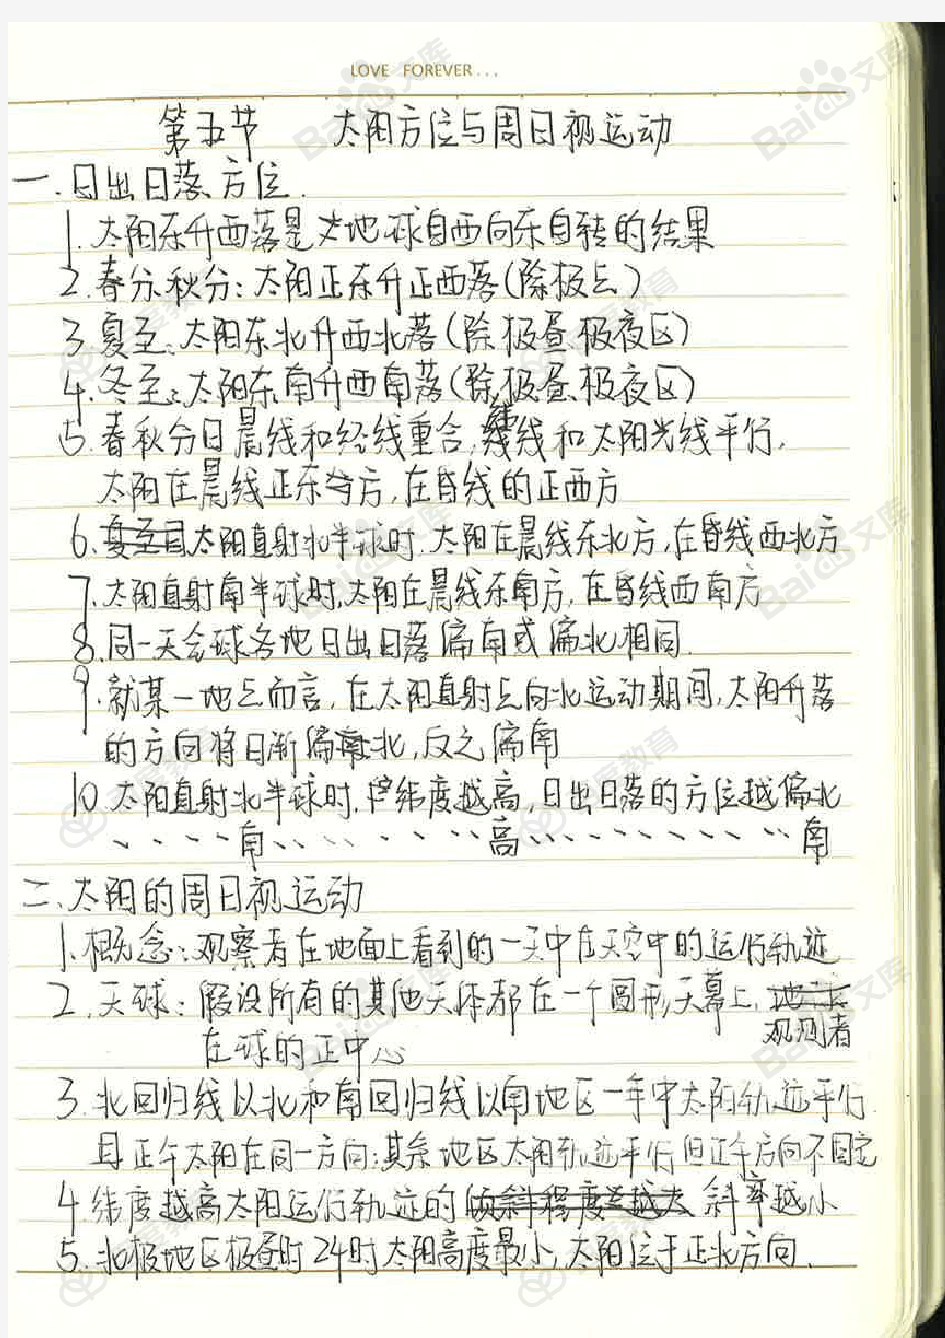 LOVE FOREVER...
第五节 太阳方位与周日视运动
一.日出日落方位.
1.太阳东升西落是地球自西向东自转的结果
2.春分秋分:太阳正东升正西落(除极点)
3.夏至:太阳东北升西北落(除极昼极夜区)
4.冬至:太阳东南升西南落(除极昼极夜区)
5.春秋分日晨线和经线重合,纬线和太阳光线平行.
太阳在晨线正东方,在昏线的正西方
6.夏至日太阳直射北半球时.太阳在晨线东北方,在昏线西北方
7.太阳直射南半球时,太阳在晨线东南方,在昏线西南方
8.同一天全球各地日出日落偏南或偏北相同.
9.就某一地点而言,在太阳直射点向北运动期间,太阳升落
的方向将日渐偏北,反之偏南
10.太阳直射北半球时,纬度越高,日出日落的方位越偏北
、、、、南、、、、、、、、高、、、、、、、、、南
二.太阳的周日视运动
1.概念:观察者在地面上看到的一天中在天空中的运行轨迹
2.天球:假设所有的其他天体都在一个圆形天幕上,
观测者
在球的正中心
3.北回归线以北和南回归线以南地区一年中太阳轨迹平行
且正午太阳在同一方向;其余地区太阳轨迹平行但正午方向不固定
4.纬度越高太阳运行轨迹的倾斜程度越大 斜率越小
5.北极地区极昼时24时太阳高度最小,太阳位于正北方向.
Baidu文库
百度教育